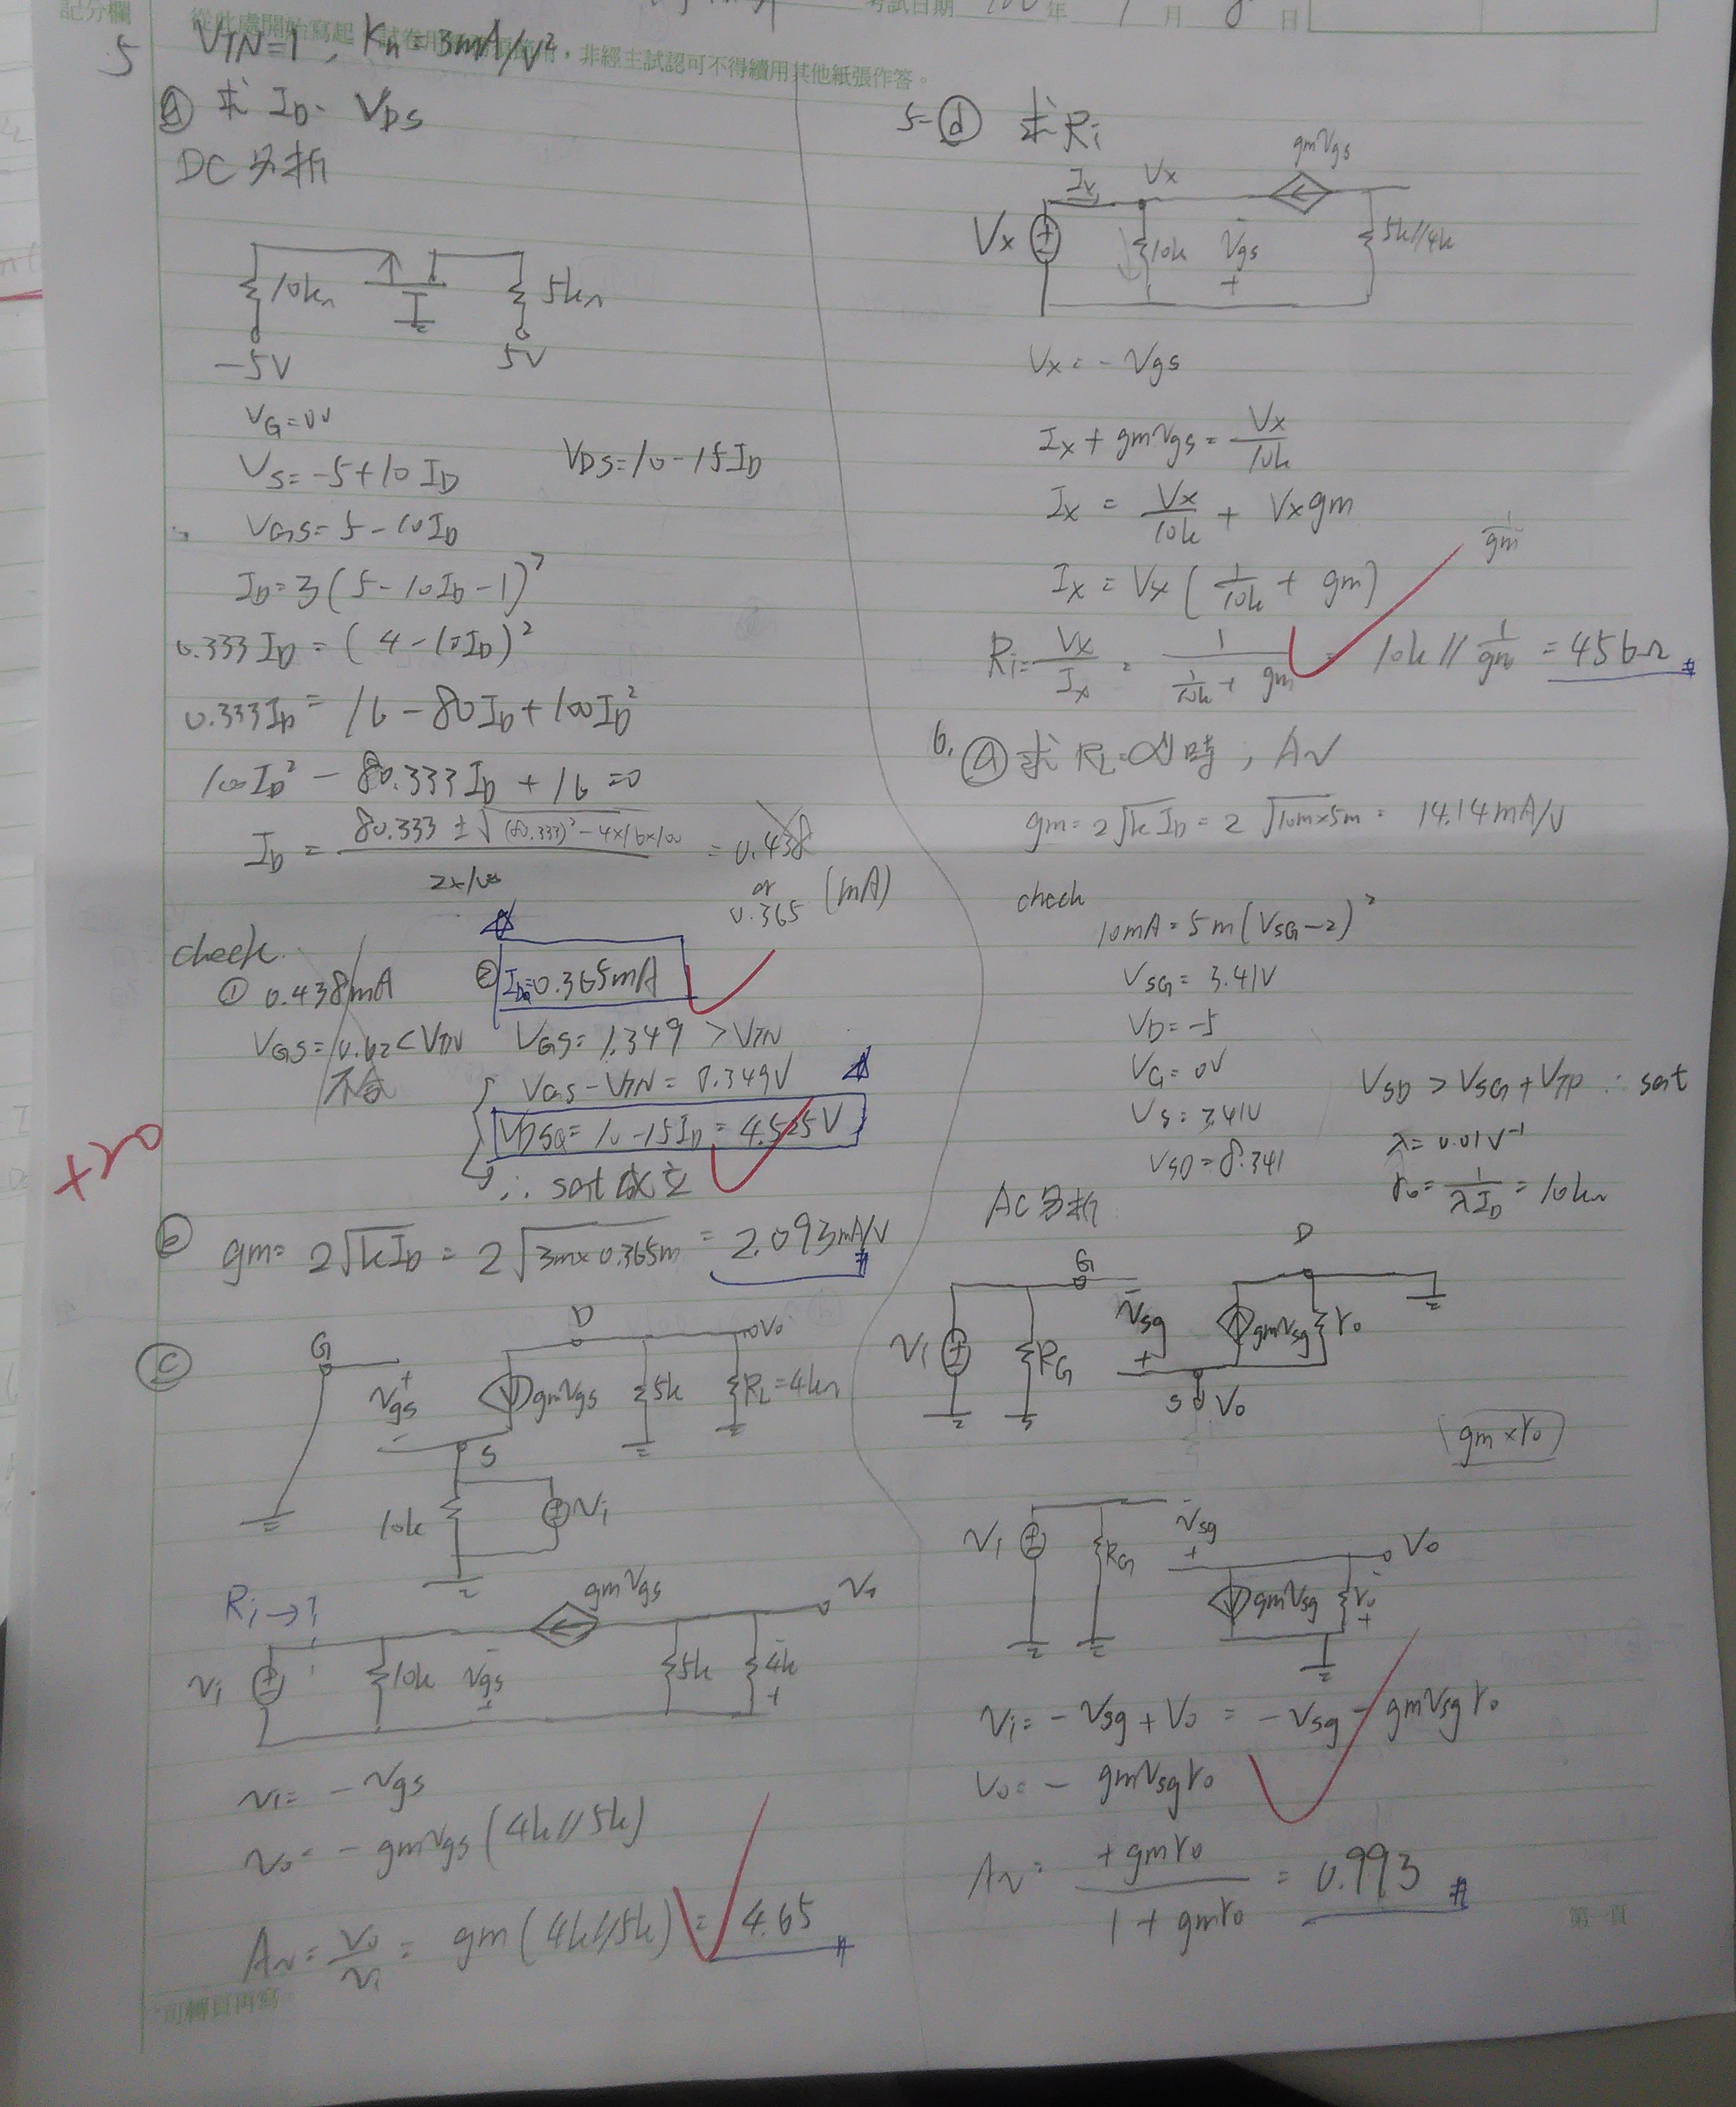 記分欄
從此處開始寫起
，非經主試認可不得續用其他紙張作答。
考試日期 100 年 1 月 8 日
5 VTN=1 , Kn=3mA/V²
ⓐ 求 ID、VDS
DC分析
10kΩ
5kΩ
-5V
5V
VG=0V
VS=-5+10ID
VDS=10-15ID
VGS=5-10ID
ID=3(5-10ID-1)²
0.333ID=(4-10ID)²
0.333ID=16-80ID+100ID²
100ID²-80.333ID+16=0
ID = (80.333±√((80.333)²-4×16×100))/(2×100) = 0.438
or
0.365 (mA)
check
① 0.438mA
VGS=0.62<VTN
不合
② IDQ=0.365mA
VGS=1.349 >VTN
VGS-VTN=0.349V
VDSQ=10-15ID=4.525V
∴ sat 成立
+20
ⓑ gm=2√(kID) = 2√(3m×0.365m) = 2.093mA/V
ⓒ
G
D
Vo
+
Vgs
-
gmVgs
5k
RL=4kΩ
S
10k
Vi
Ri→
gmVgs
Vo
Vi
10k
-
Vgs
+
5k
-
4k
+
Vi=-Vgs
Vo=-gmVgs(4k//5k)
Av=Vo/Vi=gm(4k//5k)=4.65
可轉頁再寫
5-ⓓ 求Ri
gmVgs
Ix
Vx
Vx
10k
-
Vgs
+
5k//4k
Vx=-Vgs
Ix+gmVgs=Vx/10k
Ix=Vx/10k+Vxgm
1/gm
Ix=Vx(1/10k+gm)
Ri=Vx/Ix=1/(1/10k+gm)=10k//1/gm=456Ω
6. ⓐ 求RL=∞時，Av
gm=2√(kID)=2√(10m×5m)=14.14mA/V
check
10mA=5m(VSG-2)²
VSG=3.41V
VD=-5
VG=0V
VSD>VSG+VTP ∴ sat
VS=3.41V
λ=0.01V⁻¹
VSD=8.341
ro=1/(λID)=10kΩ
AC分析
G
D
Vi
RG
-
Vsg
+
gmVsg
ro
S
Vo
gm×ro
Vi
RG
-
Vsg
+
gmVsg
-
ro
+
Vo
Vi=-Vsg+Vo=-Vsg-gmVsgro
Vo=-gmVsgro
Av=+gmro/(1+gmro)=0.993
第一頁